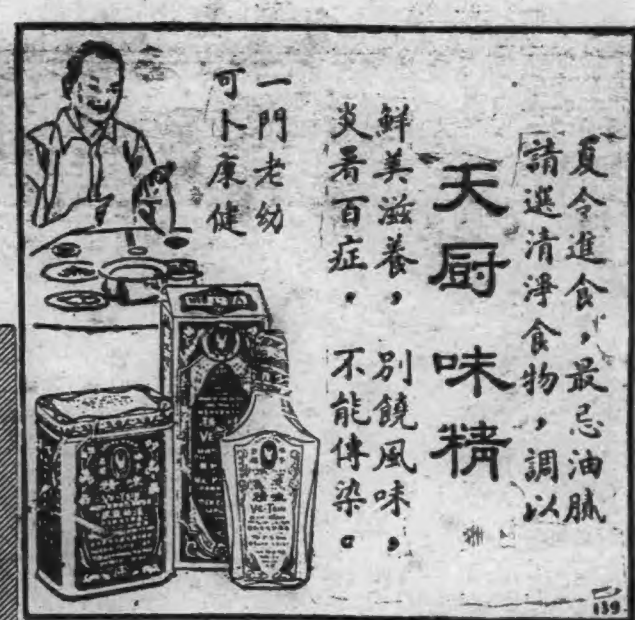 夏令進食，最忌油膩
請選清淨食物，調以
天厨味精
鮮美滋養，別饒風味，
炎暑百症，不能傳染。
一門老幼
可卜康健
味精
VE-TSIN
VE-TSIN
139